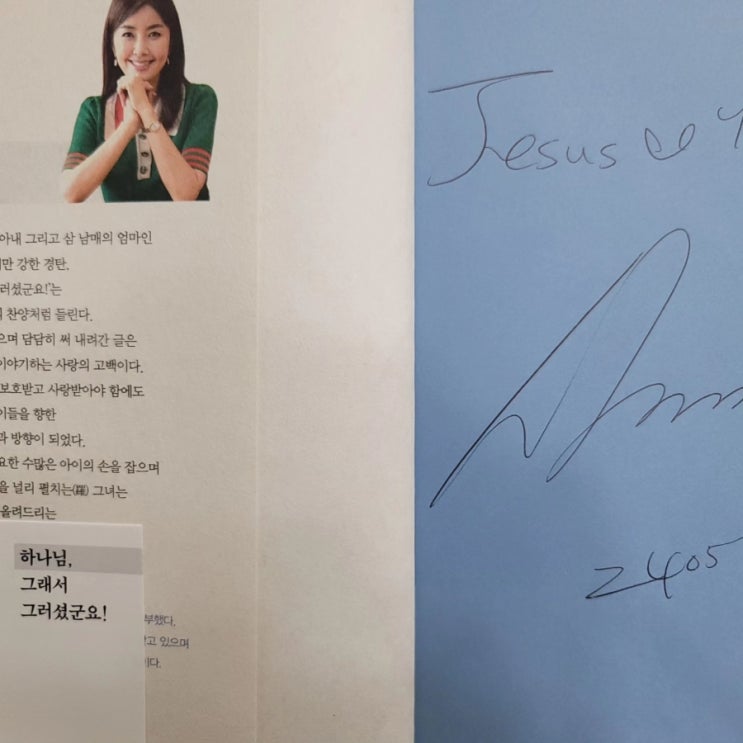 아내 그리고 삼 남매의 엄마인
만 강한 경탄.
러셨군요!'는
찬양처럼 들린다.
으며 담담히 써 내려간 글은
이야기하는 사랑의 고백이다.
보호받고 사랑받아야 함에도
이들을 향한
과 방향이 되었다.
요한 수많은 아이의 손을 잡으며
을 널리 펼치는(羅) 그녀는
올려드리는
하나님,
그래서
그러셨군요!
부했다.
있으며
이다.
Jesus
2405